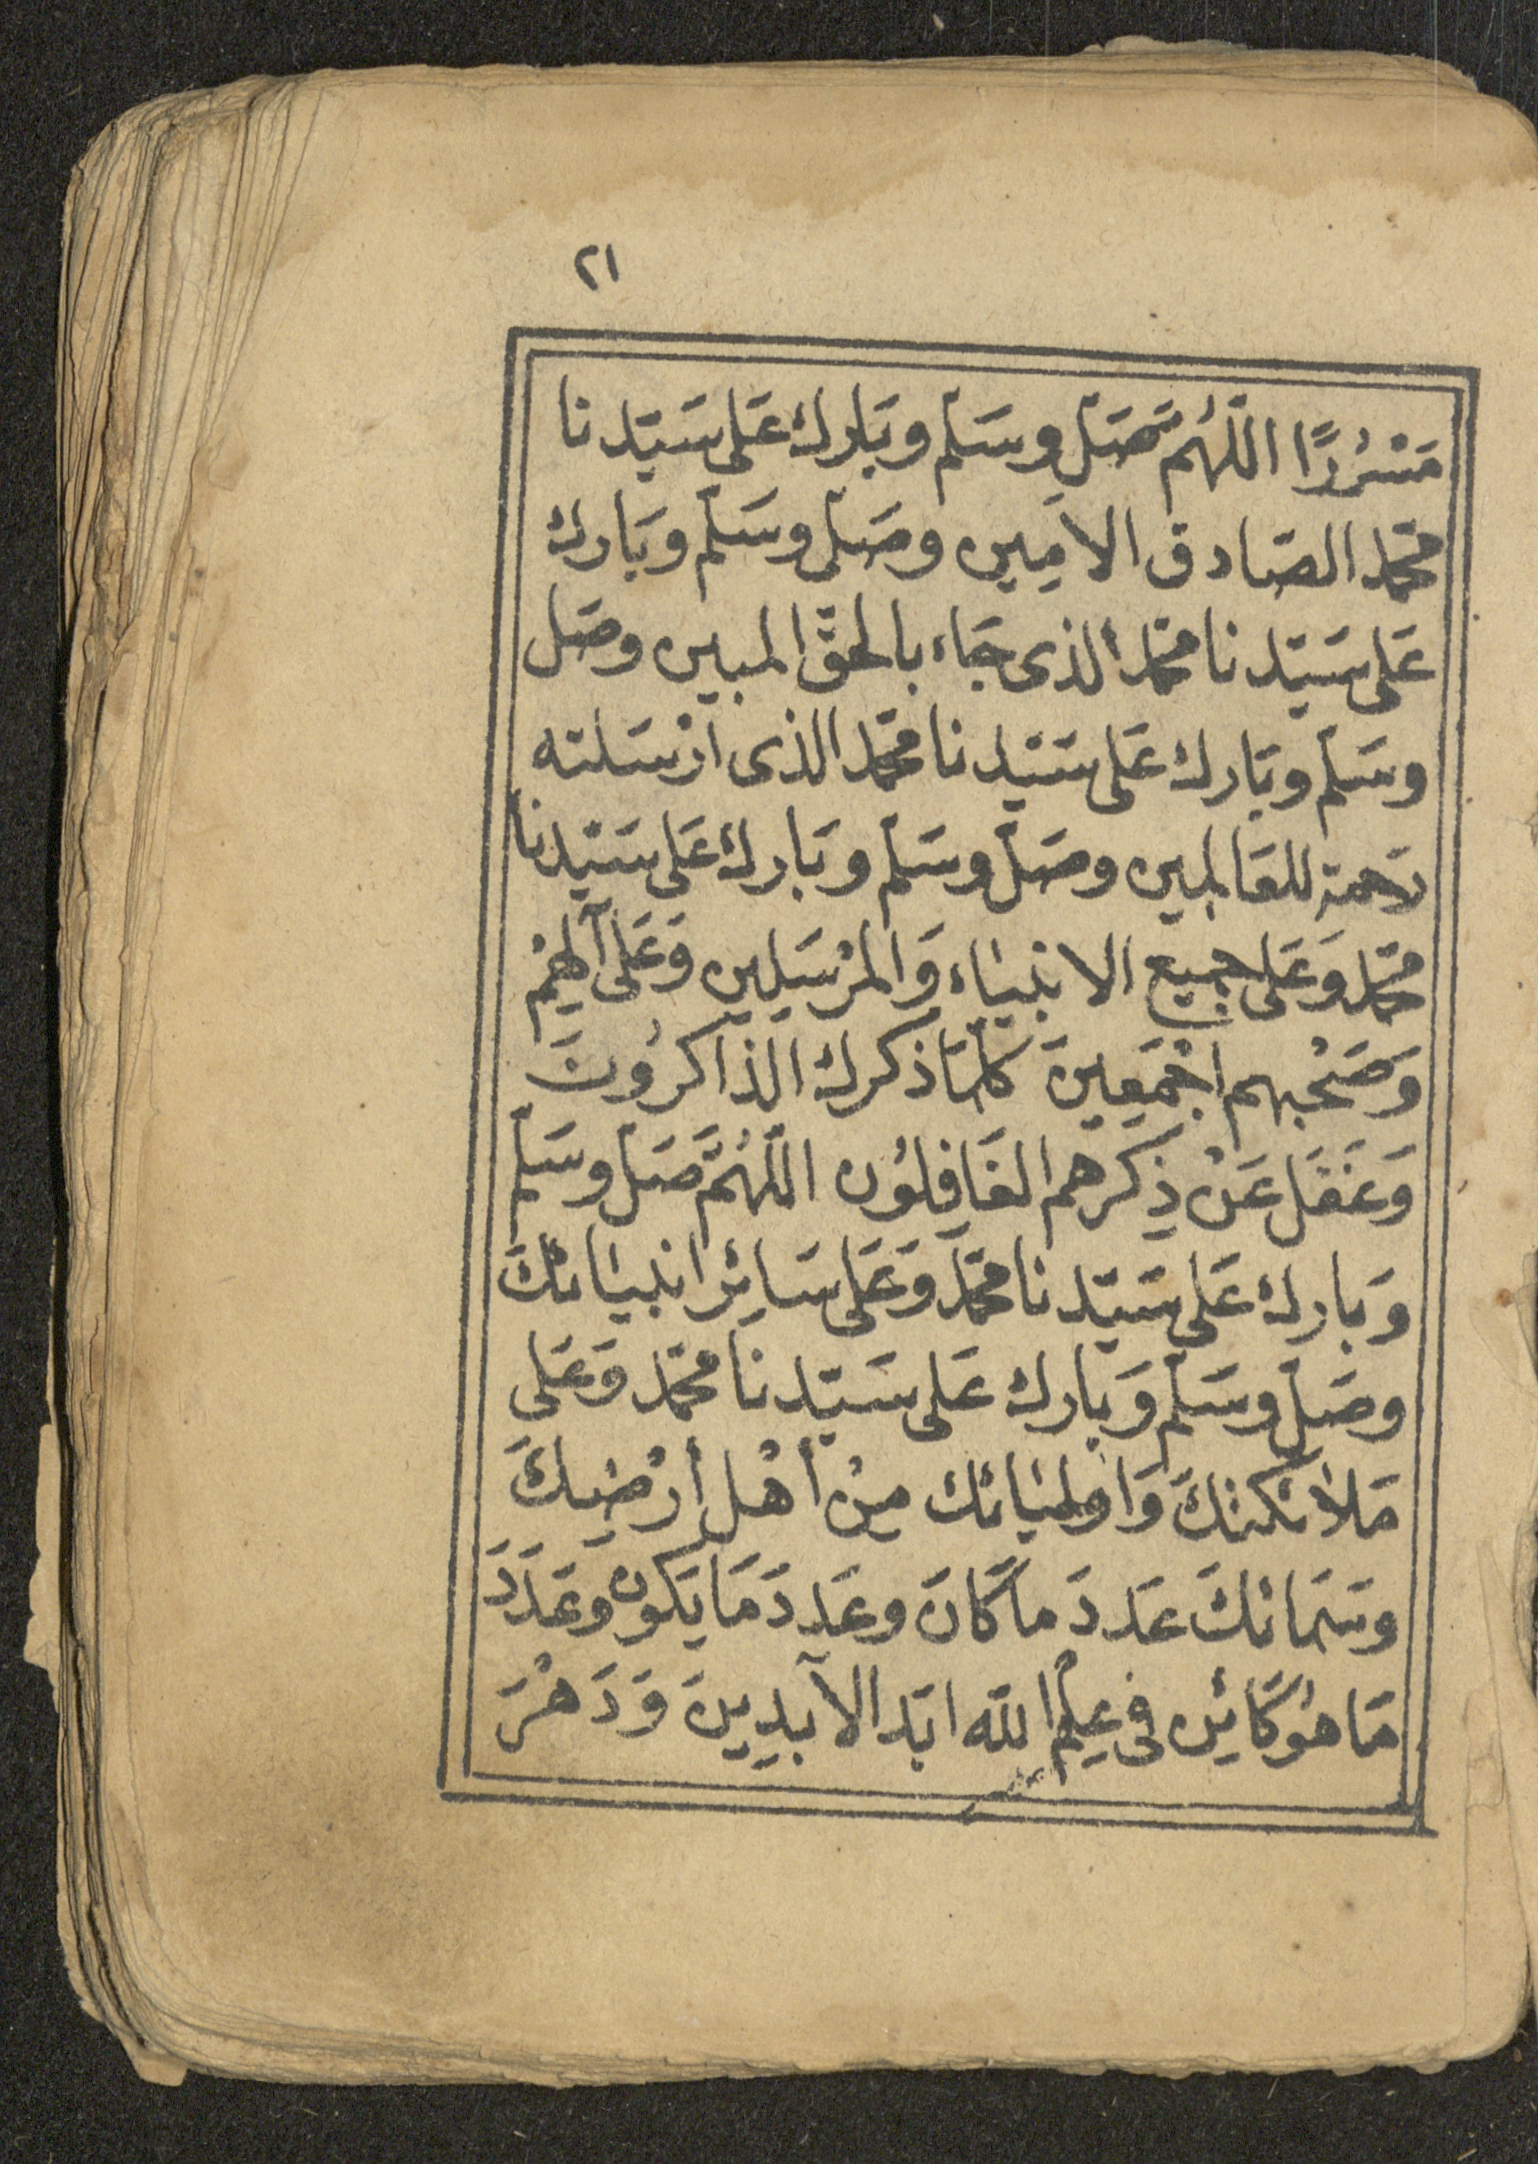 ٢١
مَسْرُورًا اللّهُم صَل وسَلم وبَارك عَلى سَيّدنا
محمّد الصَادق الامِين وصَل وسَلّم وبَارك
عَلى سَيّدنا محمّد الذى جَاء بالحقّ المبين وصَل
وسَلم وبَارك عَلى سَيّدنا محمّد الذى ارْسَلته
رَحمة للعَالمين وصَل وسَلم وبَارك عَلى سَيّدنا
محمّد وَعَلى جميع الانبيَاء وَالمرْسَلِين وَعَلى آلهِمْ
وَصَحْبهم اجْمَعِينَ كلمَا ذكرك الذاكرُونَ
وَغَفَل عَنْ ذِكرهم الغَافِلوُن اللّهُمَّ صَل وسَلّم
وَبارك عَلى سَيّدنا محمّد وَعَلى سَائِر انبيَائكَ
وصَل وسَلّم وَبارك عَلى سَيّدنا محمّد وَعَلى
مَلائكتكَ وَاوليَائك مِنْ أهْل أرْضِكَ
وسَمَائكَ عَددَ ماكَانَ وعَددَ مَا يَكون وعَدَدَ
مَا هُوكَائِن فى عِلْم الله ابَد الآبدِينَ وَدَهْرَ